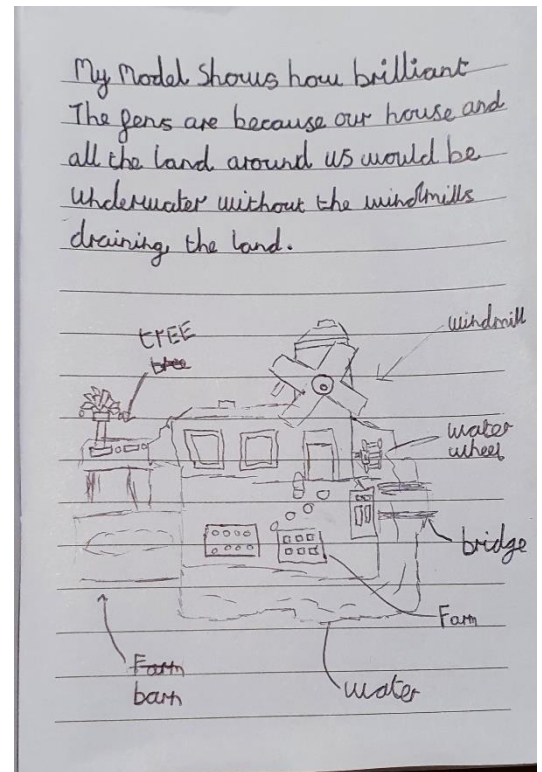 My Model Shows how brilliant
The fens are because our house and
all the land around us would be
underwater without the windmills
draining the land.
windmill
tREE
tree
water
wheel
bridge
Farm
Farm
barn
water